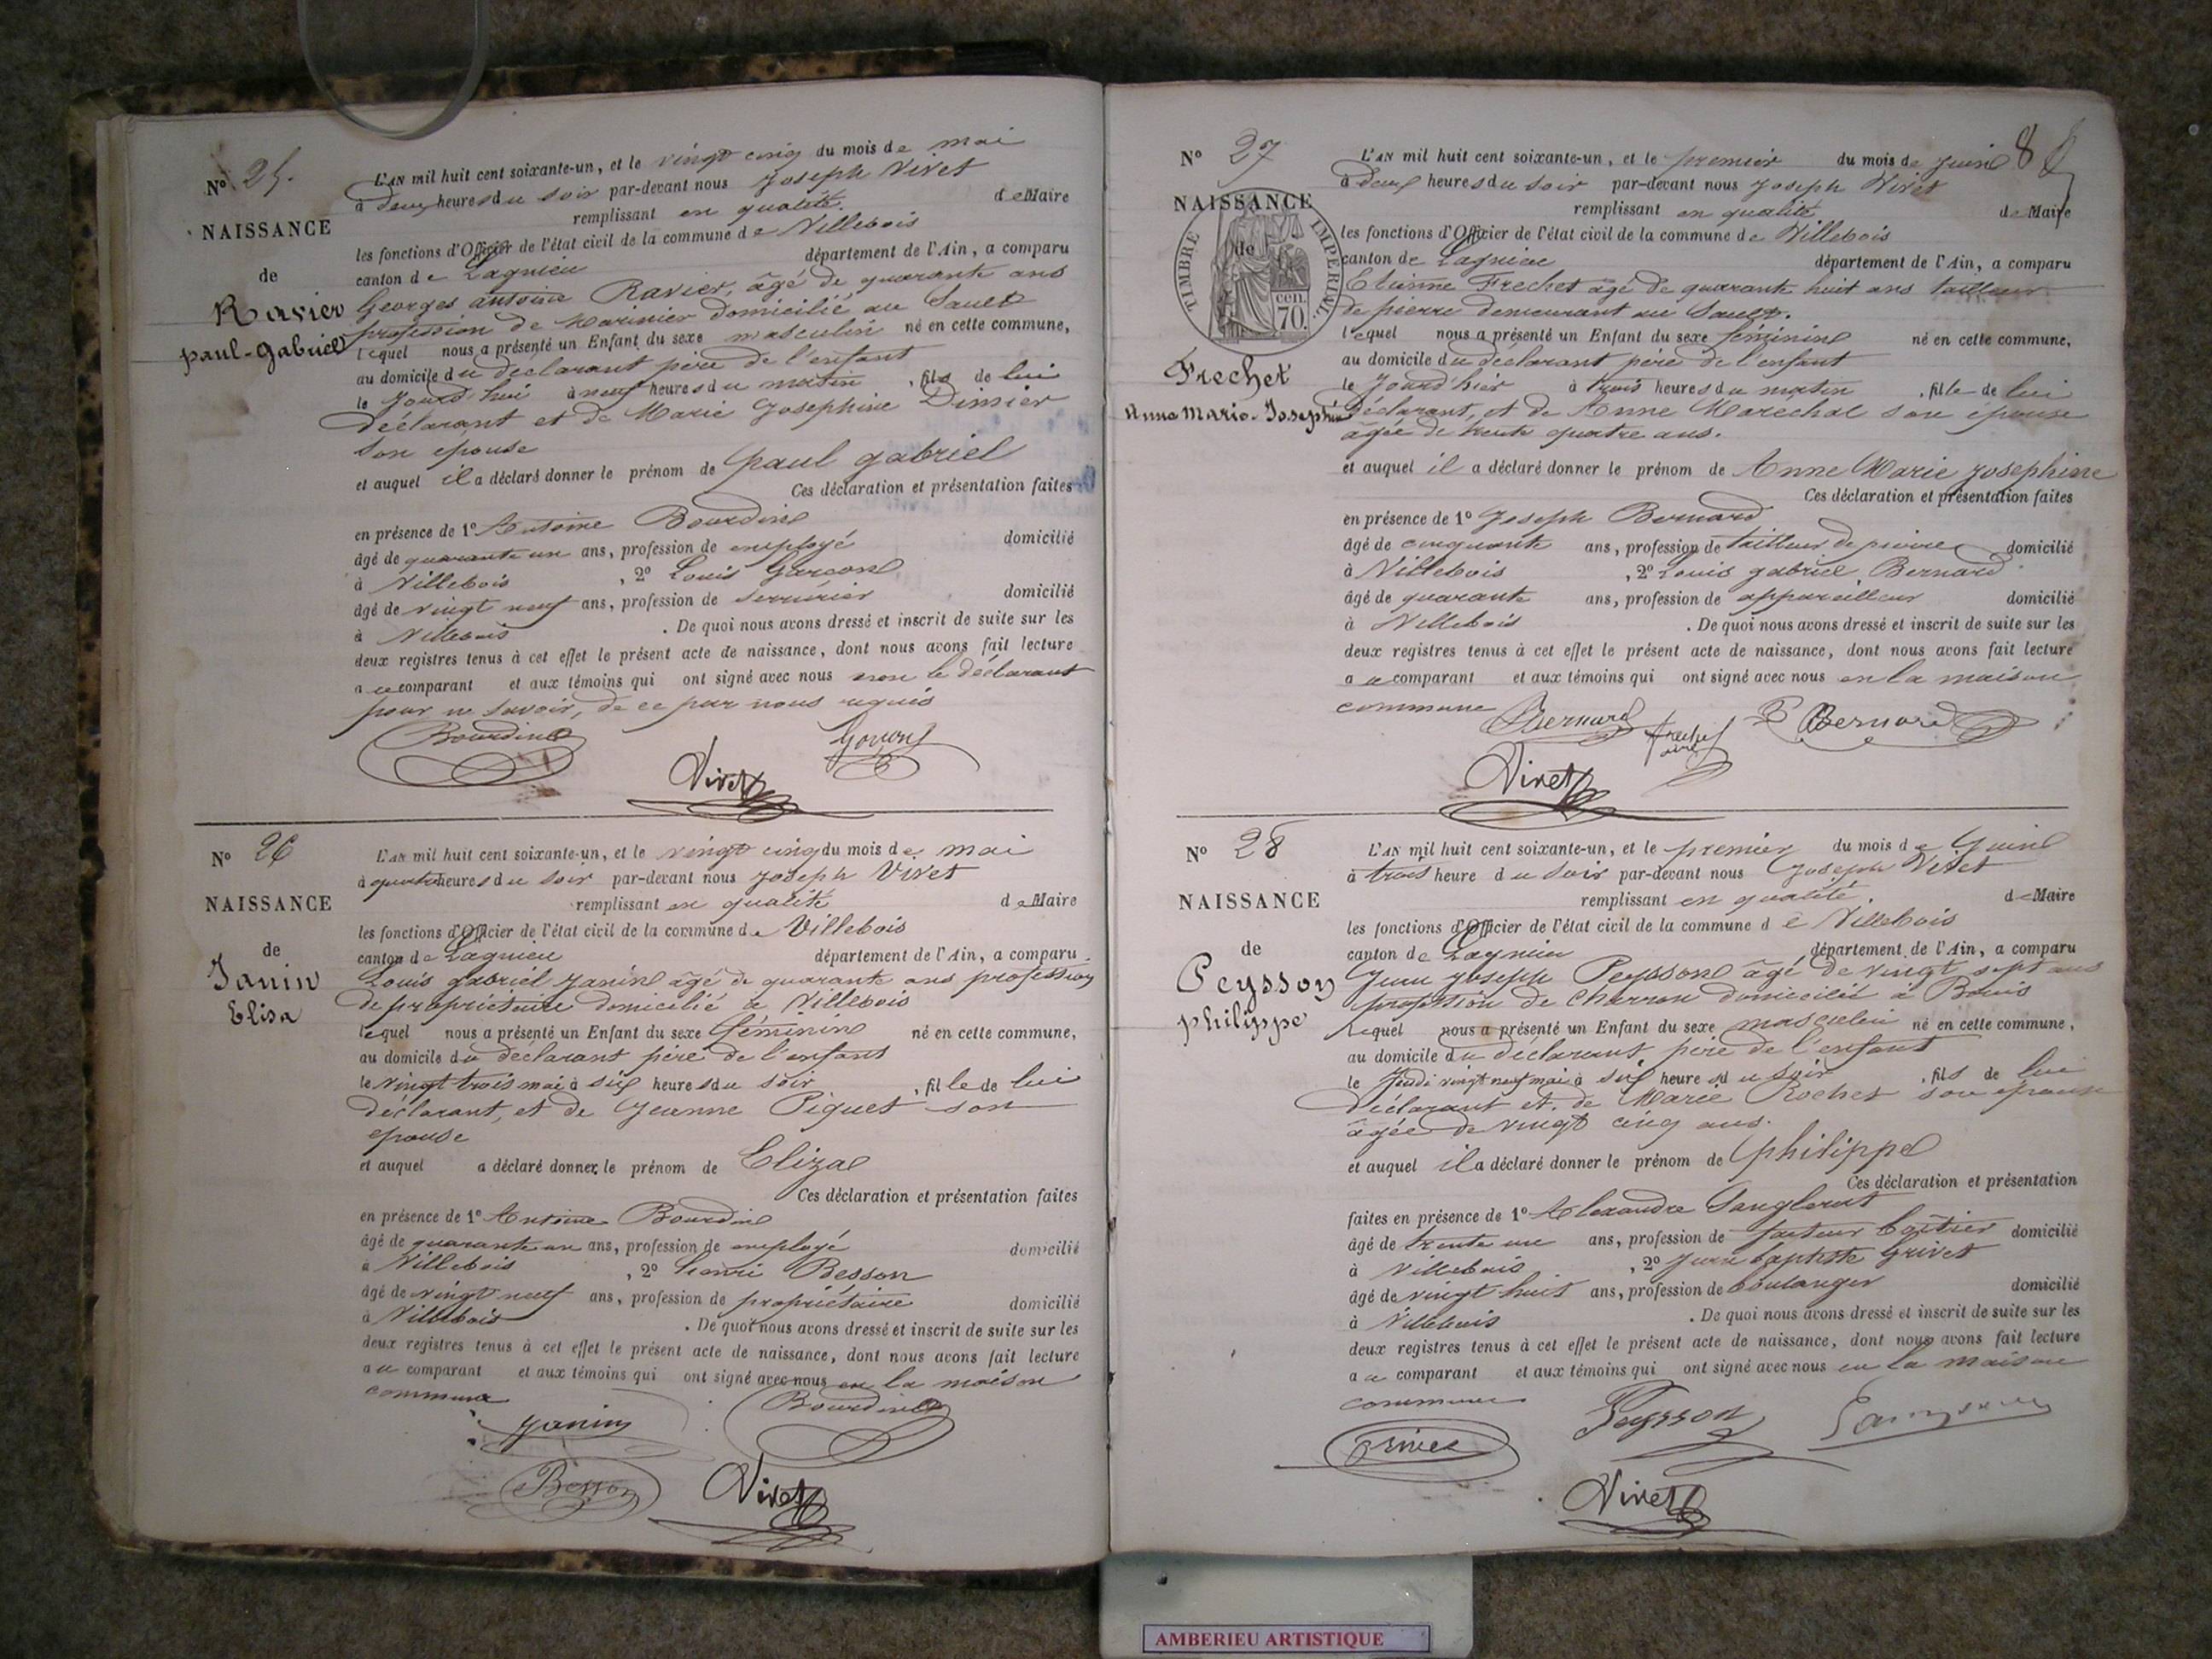 N° 25.
NAISSANCE
de
Ravier
paul-gabriel
L'AN mil huit cent soixante-un, et le vingt cinq du mois de mai
à deux heures du soir par-devant nous Joseph Vivet
remplissant en qualité de Maire
les fonctions d'Officier de l'état civil de la commune de Villebois
canton de Lagnieu département de l'Ain, a comparu
Georges antoine Ravier, âgé de quarante ans
profession de Marinier domicilié au Sault
lequel nous a présenté un Enfant du sexe masculin né en cette commune,
au domicile du déclarant père de l'enfant
le jourd'hui à neuf heures du matin, fils de lui
déclarant et de Marie Josephine Dimier
son epouse
et auquel il a déclaré donner le prénom de paul gabriel
Ces déclaration et présentation faites
en présence de 1° Antoine Bourdin
âgé de quarante un ans, profession de employé domicilié
à Villebois, 2° Louis
âgé de vingt neuf ans, profession de serrurier domicilié
à Villebois. De quoi nous avons dressé et inscrit de suite sur les
deux registres tenus à cet effet le présent acte de naissance, dont nous avons fait lecture
au comparant et aux témoins qui ont signé avec nous non le déclarant
pour ne savoir, de ce par nous requis
Bourdin
Vivet
N° 26
NAISSANCE
de
Janin
Elisa
L'AN mil huit cent soixante-un, et le vingt cinq du mois de mai
à quatre heures du soir par-devant nous Joseph Vivet
remplissant en qualité de Maire
les fonctions d'Officier de l'état civil de la commune de Villebois
canton de Lagnieu département de l'Ain, a comparu
Louis gabriel Janin âgé de quarante ans profession
de propriétaire domicilié à Villebois
lequel nous a présenté un Enfant du sexe féminin né en cette commune,
au domicile du déclarant père de l'enfant
le vingt trois mai à six heures du soir, fille de lui
déclarant, et de Jeanne Piguet son
epouse
et auquel a déclaré donner le prénom de Eliza
Ces déclaration et présentation faites
en présence de 1° Antoine Bourdin
âgé de quarante un ans, profession de employé domicilié
à Villebois, 2° henri Besson
âgé de vingt neuf ans, profession de propriétaire domicilié
à Villebois. De quoi nous avons dressé et inscrit de suite sur les
deux registres tenus à cet effet le présent acte de naissance, dont nous avons fait lecture
au comparant et aux témoins qui ont signé avec nous en la maison
commune
Janin
Bourdin
Besson
Vivet
8
N° 27
NAISSANCE
de
TIMBRE IMPERIAL
70 cen.
Frechet
Anne Marie-Joséphine
L'AN mil huit cent soixante-un, et le premier du mois de juin
à deux heures du soir par-devant nous Joseph Vivet
remplissant en qualité de Maire
les fonctions d'Officier de l'état civil de la commune de Villebois
canton de Lagnieu département de l'Ain, a comparu
Etienne Frechet âgé de quarante huit ans tailleur
de pierre demeurant au Sault.
lequel nous a présenté un Enfant du sexe féminin né en cette commune,
au domicile du déclarant père de l'enfant
le jourd'hier à trois heures du matin, fille de lui
déclarant, et de Anne Marechal son épouse
âgée de trente quatre ans.
et auquel il a déclaré donner le prénom de Anne Marie Josephine
Ces déclaration et présentation faites
en présence de 1° Joseph Bernard
âgé de cinquante ans, profession de tailleur de pierre domicilié
à Villebois, 2° Louis gabriel Bernard
âgé de quarante ans, profession de appareilleur domicilié
à Villebois. De quoi nous avons dressé et inscrit de suite sur les
deux registres tenus à cet effet le présent acte de naissance, dont nous avons fait lecture
au comparant et aux témoins qui ont signé avec nous en la maison
commune
Bernard
Bernard
Vivet
N° 28
NAISSANCE
de
Peysson
philippe
L'AN mil huit cent soixante-un, et le premier du mois de Juin
à trois heure du soir par-devant nous Joseph Vivet
remplissant en qualité de Maire
les fonctions d'Officier de l'état civil de la commune de Villebois
canton de Lagnieu département de l'Ain, a comparu
Jean Joseph Peysson âgé de vingt sept ans
profession de charron domicilié à Bouis
lequel nous a présenté un Enfant du sexe masculin né en cette commune,
au domicile du déclarant, père de l'enfant
le Jeudi vingt neuf mai à six heures du soir, fils de lui
déclarant et de Marie Rochet son épouse
âgée de vingt cinq ans.
et auquel il a déclaré donner le prénom de philippe
Ces déclaration et présentation
faites en présence de 1° Alexandre
âgé de trente un ans, profession de facteur boîtier domicilié
à Villebois, 2° Jean baptiste Grivet
âgé de vingt huit ans, profession de boulanger domicilié
à Villebois. De quoi nous avons dressé et inscrit de suite sur les
deux registres tenus à cet effet le présent acte de naissance, dont nous avons fait lecture
au comparant et aux témoins qui ont signé avec nous en la maison
commune
Peysson
Vivet
AMBERIEU ARTISTIQUE